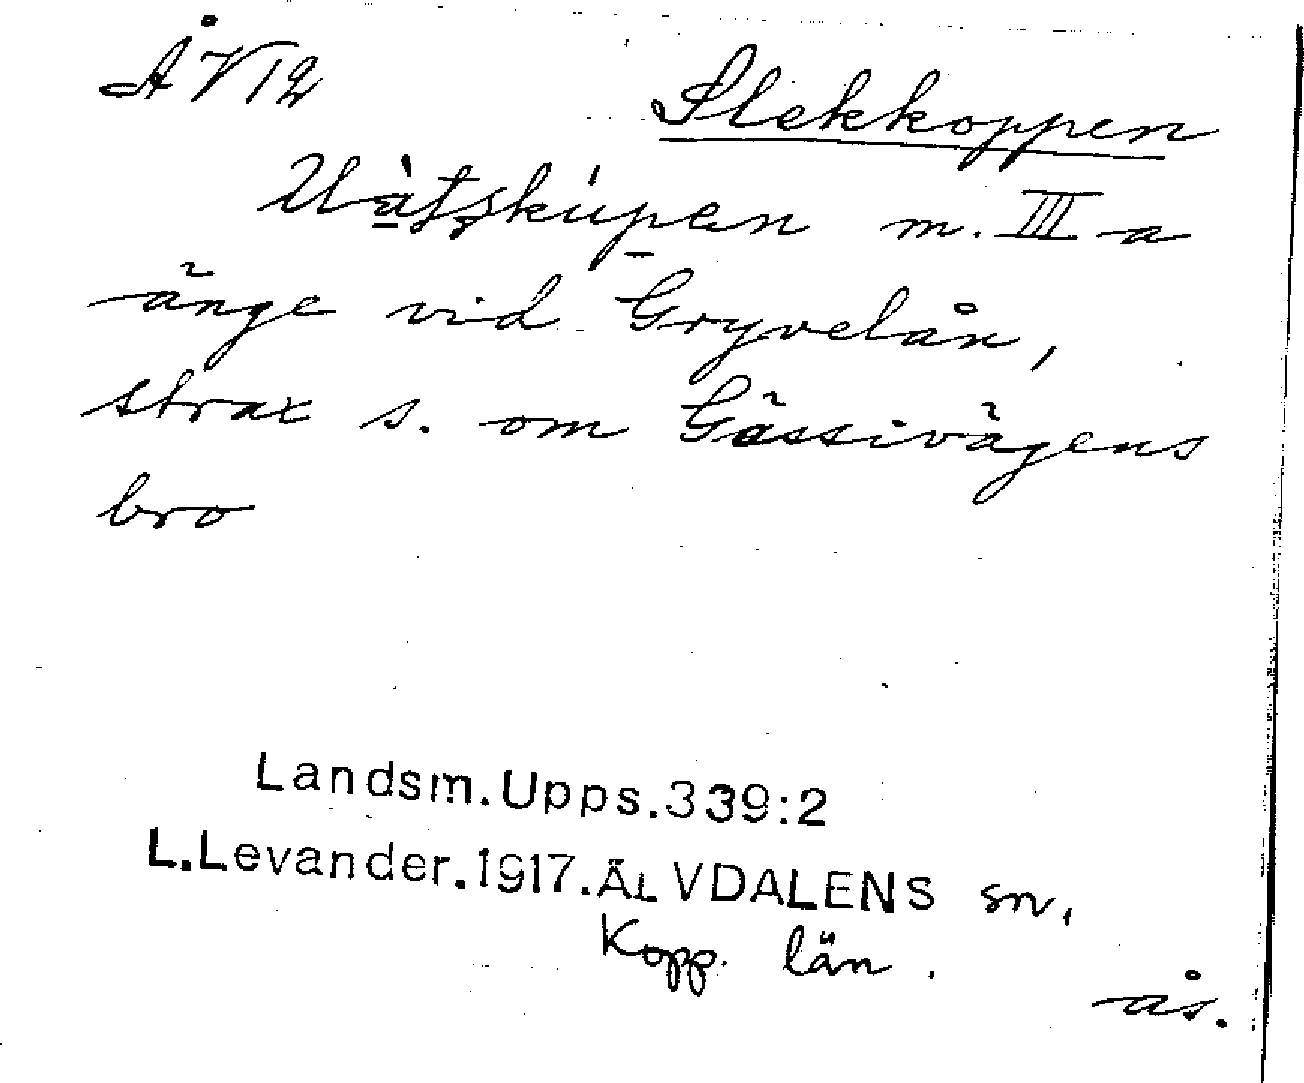 ÅV12
Slekkoppen
m. III a
änge vid Gryvelån,
strax s. om Gässivägens
bro
Landsm.Upps.339:2
L.Levander.1917.ÄLVDALENS sn,
Kopp. län.
ås.